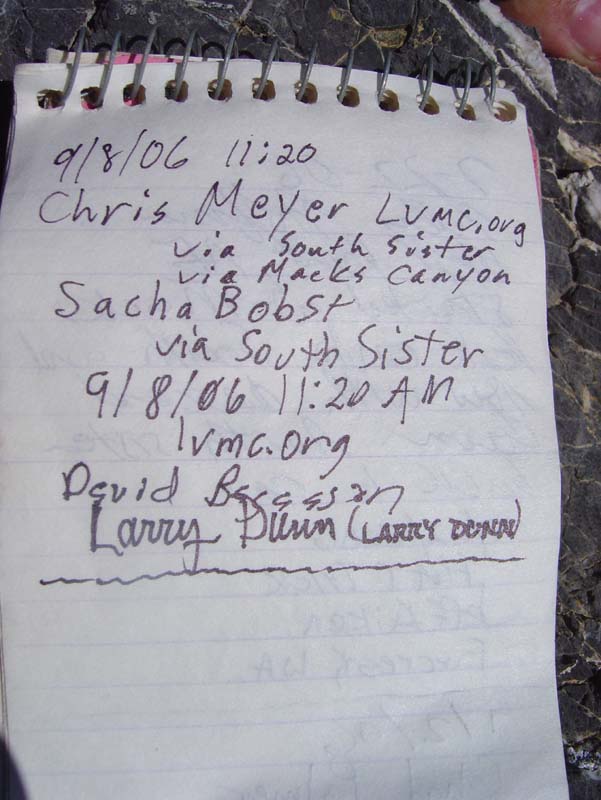 9/8/06 11:20
Chris Meyer LVMC.org
via South Sister
via Macks Canyon
Sacha Bobst
via South Sister
9/8/06 11:20 AM
lvmc.org
David
Larry Dunn (LARRY DUNN)